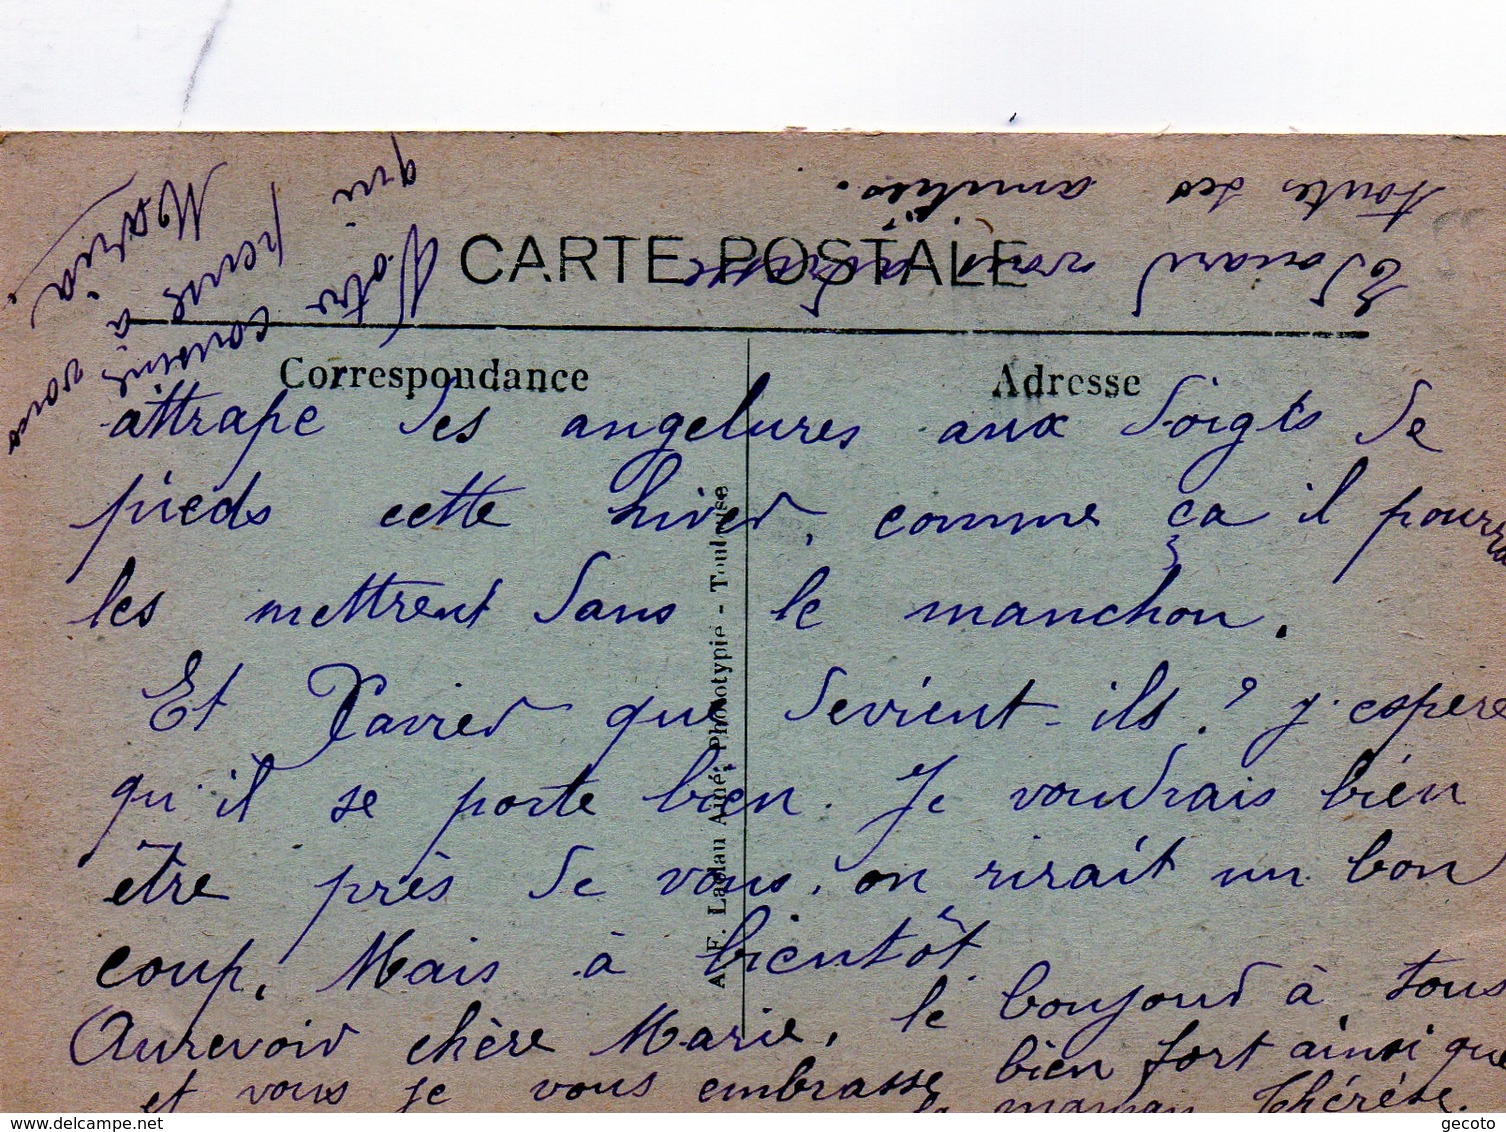 CARTE POSTALE
Correspondance
Adresse
attrape des angelures aux doigts de
pieds cette hiver, comme ça il pourra
les mettrent dans le manchon.
Et Xavier que devient-ils? j'espère
qu'il se porte bien. Je voudrais bien
être près de vous, on rirait un bon
coup. Mais à bientôt
Aurevoir chère Marie, le bonjour à tous
et vous je vous embrasse bien fort ainsi que
la maman Thérèse.
Votre cousine
qui pense à vous
Maria.
Edouard vous
toutes ses amitiés.
A. F. Laclau Aîné, Phototypie - Toulouse
www.delcampe.net
gecoto